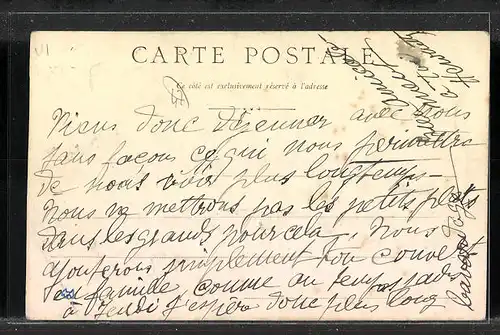 CARTE POSTALE
Ce côté est exclusivement réservé à l'adresse
Viens donc déjeuner avec nous
sans façons ce qui nous permettra
de nous voir plus longtemps -
Nous ne mettrons pas les petits plats
dans les grands pour cela, Nous
ajouterons simplement ton couvert
en famille, comme au temps jadis
à Jeudi j'espère donc plus long